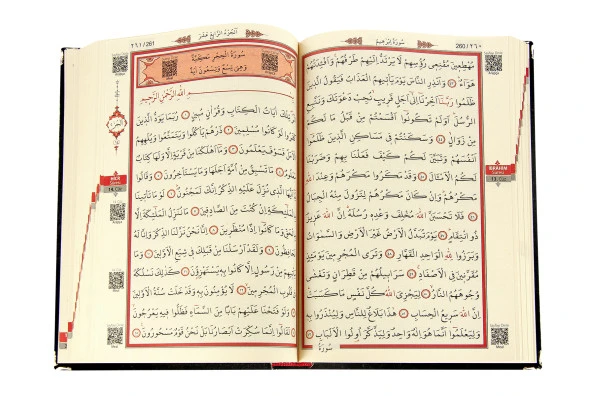 ٢٦٠ / 260
سُورَةُ إِبْرٰهِيمَ
مُهْطِعِينَ مُقْنِعِي رُؤُسِهِمْ لَا يَرْتَدُّ إِلَيْهِمْ طَرْفُهُمْ وَأَفْئِدَتُهُمْ
هَوَاءٌ ﴿٤٣﴾ وَأَنْذِرِ النَّاسَ يَوْمَ يَأْتِيهِمُ الْعَذَابُ فَيَقُولُ الَّذِينَ
ظَلَمُوا رَبَّنَا أَخِّرْنَا إِلَى أَجَلٍ قَرِيبٍ نُجِبْ دَعْوَتَكَ وَنَتَّبِعِ
الرُّسُلَ أَوَلَمْ تَكُونُوا أَقْسَمْتُمْ مِنْ قَبْلُ مَا لَكُمْ
مِنْ زَوَالٍ ﴿٤٤﴾ وَسَكَنْتُمْ فِي مَسَاكِنِ الَّذِينَ ظَلَمُوا
أَنْفُسَهُمْ وَتَبَيَّنَ لَكُمْ كَيْفَ فَعَلْنَا بِهِمْ وَضَرَبْنَا
لَكُمُ الْأَمْثَالَ ﴿٤٥﴾ وَقَدْ مَكَرُوا مَكْرَهُمْ وَعِنْدَ اللهِ
مَكْرُهُمْ وَإِنْ كَانَ مَكْرُهُمْ لِتَزُولَ مِنْهُ الْجِبَالُ
﴿٤٦﴾ فَلَا تَحْسَبَنَّ اللهَ مُخْلِفَ وَعْدِهِ رُسُلَهُ إِنَّ اللهَ عَزِيزٌ
ذُو انْتِقَامٍ ﴿٤٧﴾ يَوْمَ تُبَدَّلُ الْأَرْضُ غَيْرَ الْأَرْضِ وَالسَّمٰوَاتُ
وَبَرَزُوا لِلهِ الْوَاحِدِ الْقَهَّارِ ﴿٤٨﴾ وَتَرَى الْمُجْرِمِينَ يَوْمَئِذٍ
مُقَرَّنِينَ فِي الْأَصْفَادِ ﴿٤٩﴾ سَرَابِيلُهُمْ مِنْ قَطِرَانٍ وَتَغْشٰى
وُجُوهَهُمُ النَّارُ ﴿٥٠﴾ لِيَجْزِيَ اللهُ كُلَّ نَفْسٍ مَا كَسَبَتْ
إِنَّ اللهَ سَرِيعُ الْحِسَابِ ﴿٥١﴾ هٰذَا بَلَاغٌ لِلنَّاسِ وَلِيُنْذَرُوا بِهِ
وَلِيَعْلَمُوا أَنَّمَا هُوَ إِلٰهٌ وَاحِدٌ وَلِيَذَّكَّرَ أُولُوا الْأَلْبَابِ ﴿٥٢﴾
سُورَةُ
İBRAHİM
Suresi
13. Cüz
اَلْجُزْءُ الرَّابِعُ عَشَرَ
٢٦١ / 261
سُورَةُ الْحِجْرِ مَكِّيَّةٌ
وَهِيَ تِسْعٌ وَتِسْعُونَ آيَةً
اللهِ الرَّحْمٰنِ الرَّحِيمِ
تِلْكَ آيَاتُ الْكِتَابِ وَقُرْآنٍ مُبِينٍ ﴿١﴾ رُبَمَا يَوَدُّ الَّذِينَ
كَفَرُوا لَوْ كَانُوا مُسْلِمِينَ ﴿٢﴾ ذَرْهُمْ يَأْكُلُوا وَيَتَمَتَّعُوا وَيُلْهِهِمُ
الْأَمَلُ فَسَوْفَ يَعْلَمُونَ ﴿٣﴾ وَمَا أَهْلَكْنَا مِنْ قَرْيَةٍ إِلَّا وَلَهَا كِتَابٌ
مَعْلُومٌ ﴿٤﴾ مَا تَسْبِقُ مِنْ أُمَّةٍ أَجَلَهَا وَمَا يَسْتَأْخِرُونَ ﴿٥﴾ وَقَالُوا
يَا أَيُّهَا الَّذِي نُزِّلَ عَلَيْهِ الذِّكْرُ إِنَّكَ لَمَجْنُونٌ ﴿٦﴾ لَوْ مَا تَأْتِينَا
بِالْمَلٰئِكَةِ إِنْ كُنْتَ مِنَ الصَّادِقِينَ ﴿٧﴾ مَا نُنَزِّلُ الْمَلٰئِكَةَ إِلَّا
بِالْحَقِّ وَمَا كَانُوا إِذًا مُنْظَرِينَ ﴿٨﴾ إِنَّا نَحْنُ نَزَّلْنَا الذِّكْرَ وَإِنَّا لَهُ
لَحَافِظُونَ ﴿٩﴾ وَلَقَدْ أَرْسَلْنَا مِنْ قَبْلِكَ فِي شِيَعِ الْأَوَّلِينَ ﴿١٠﴾ وَمَا
يَأْتِيهِمْ مِنْ رَسُولٍ إِلَّا كَانُوا بِهِ يَسْتَهْزِؤُنَ ﴿١١﴾ كَذٰلِكَ نَسْلُكُهُ
فِي قُلُوبِ الْمُجْرِمِينَ ﴿١٢﴾ لَا يُؤْمِنُونَ بِهِ وَقَدْ خَلَتْ سُنَّةُ الْأَوَّلِينَ
﴿١٣﴾ وَلَوْ فَتَحْنَا عَلَيْهِمْ بَابًا مِنَ السَّمَاءِ فَظَلُّوا فِيهِ يَعْرُجُونَ ﴿١٤﴾
لَقَالُوا إِنَّمَا سُكِّرَتْ أَبْصَارُنَا بَلْ نَحْنُ قَوْمٌ مَسْحُورُونَ ﴿١٥﴾
HİCR
Suresi
14. Cüz